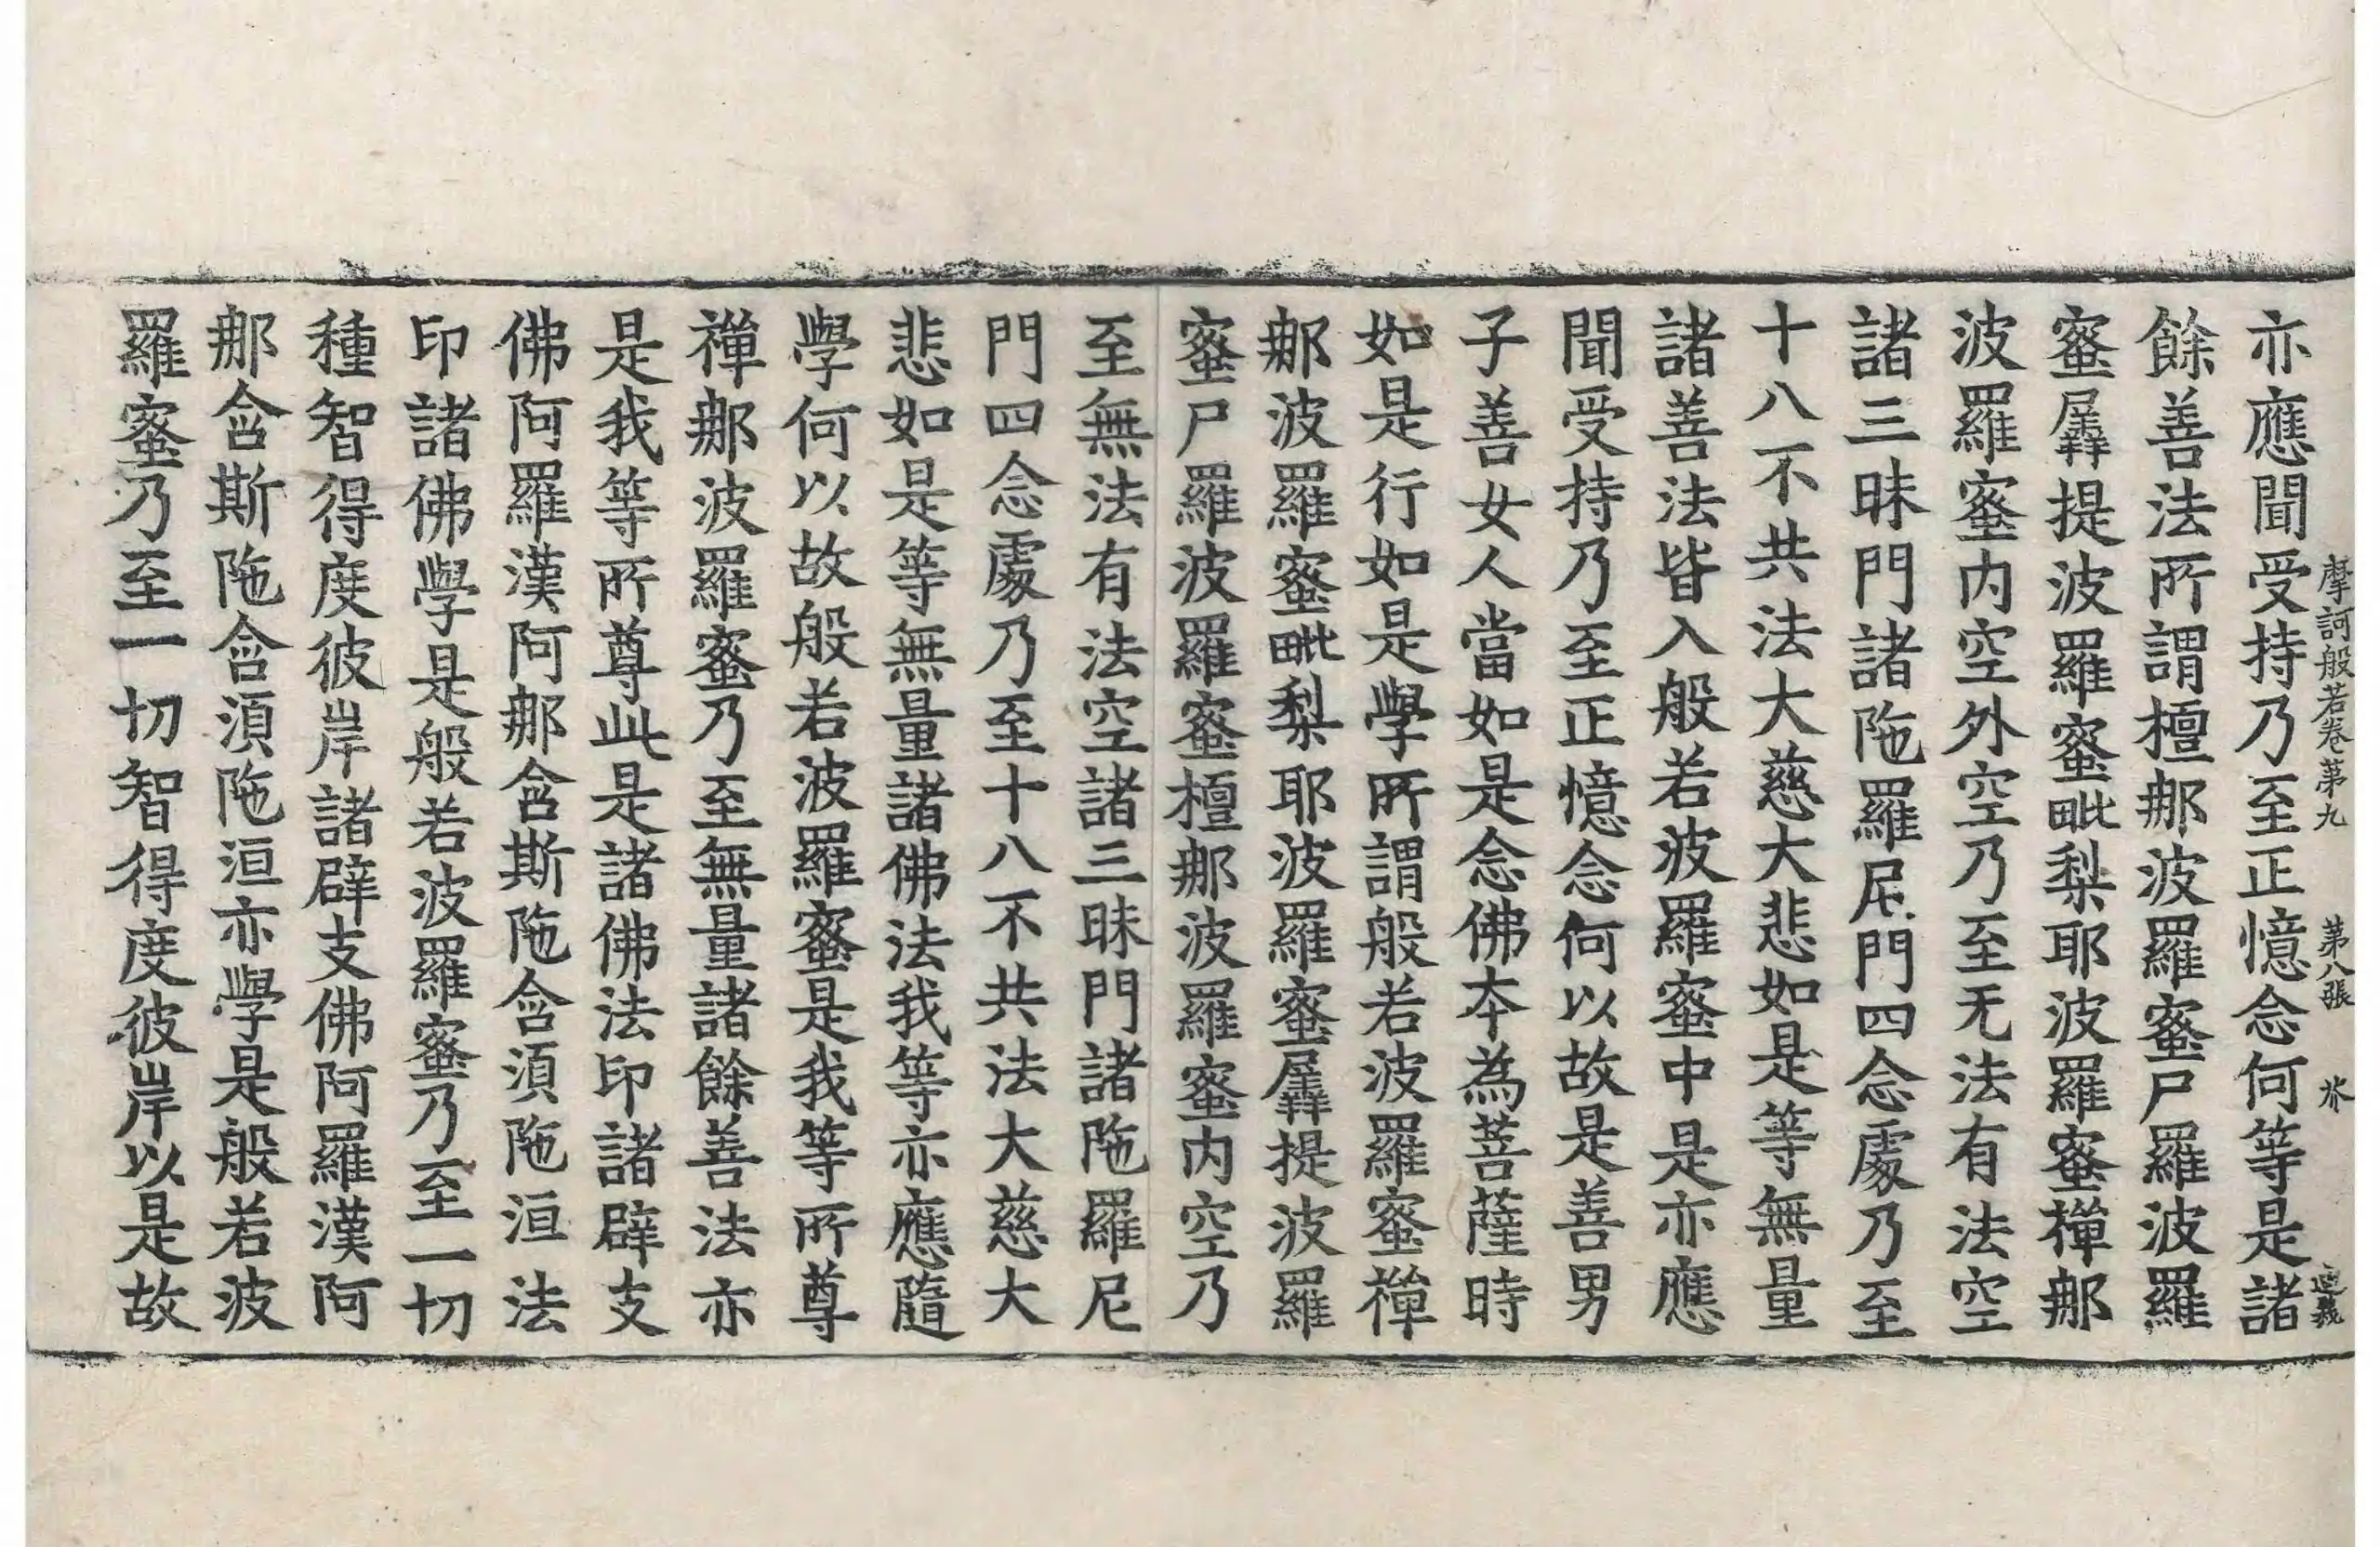 摩訶般若卷第九　第八張　㭍
亦應聞受持乃至正憶念何等是諸
餘善法所謂檀那波羅蜜尸羅波羅
蜜羼提波羅蜜毗梨耶波羅蜜禪那
波羅蜜内空外空乃至无法有法空
諸三昧門諸陁羅尼門四念處乃至
十八不共法大慈大悲如是等無量
諸善法皆入般若波羅蜜中是亦應
聞受持乃至正憶念何以故是善男
子善女人當如是念佛夲為菩薩時
如是行如是學所謂般若波羅蜜禪
那波羅蜜毗梨耶波羅蜜羼提波羅
蜜尸羅波羅蜜檀那波羅蜜内空乃
至無法有法空諸三昧門諸陁羅尼
門四念處乃至十八不共法大慈大
悲如是等無量諸佛法我等亦應隨
學何以故般若波羅蜜是我等所尊
禪那波羅蜜乃至無量諸餘善法亦
是我等所尊此是諸佛法印諸辟支
佛阿羅漢阿那含斯陁含湏陁洹法
印諸佛學是般若波羅蜜乃至一切
種智得度彼岸諸辟支佛阿羅漢阿
那含斯陁含湏陁洹亦學是般若波
羅蜜乃至一切智得度彼岸以是故